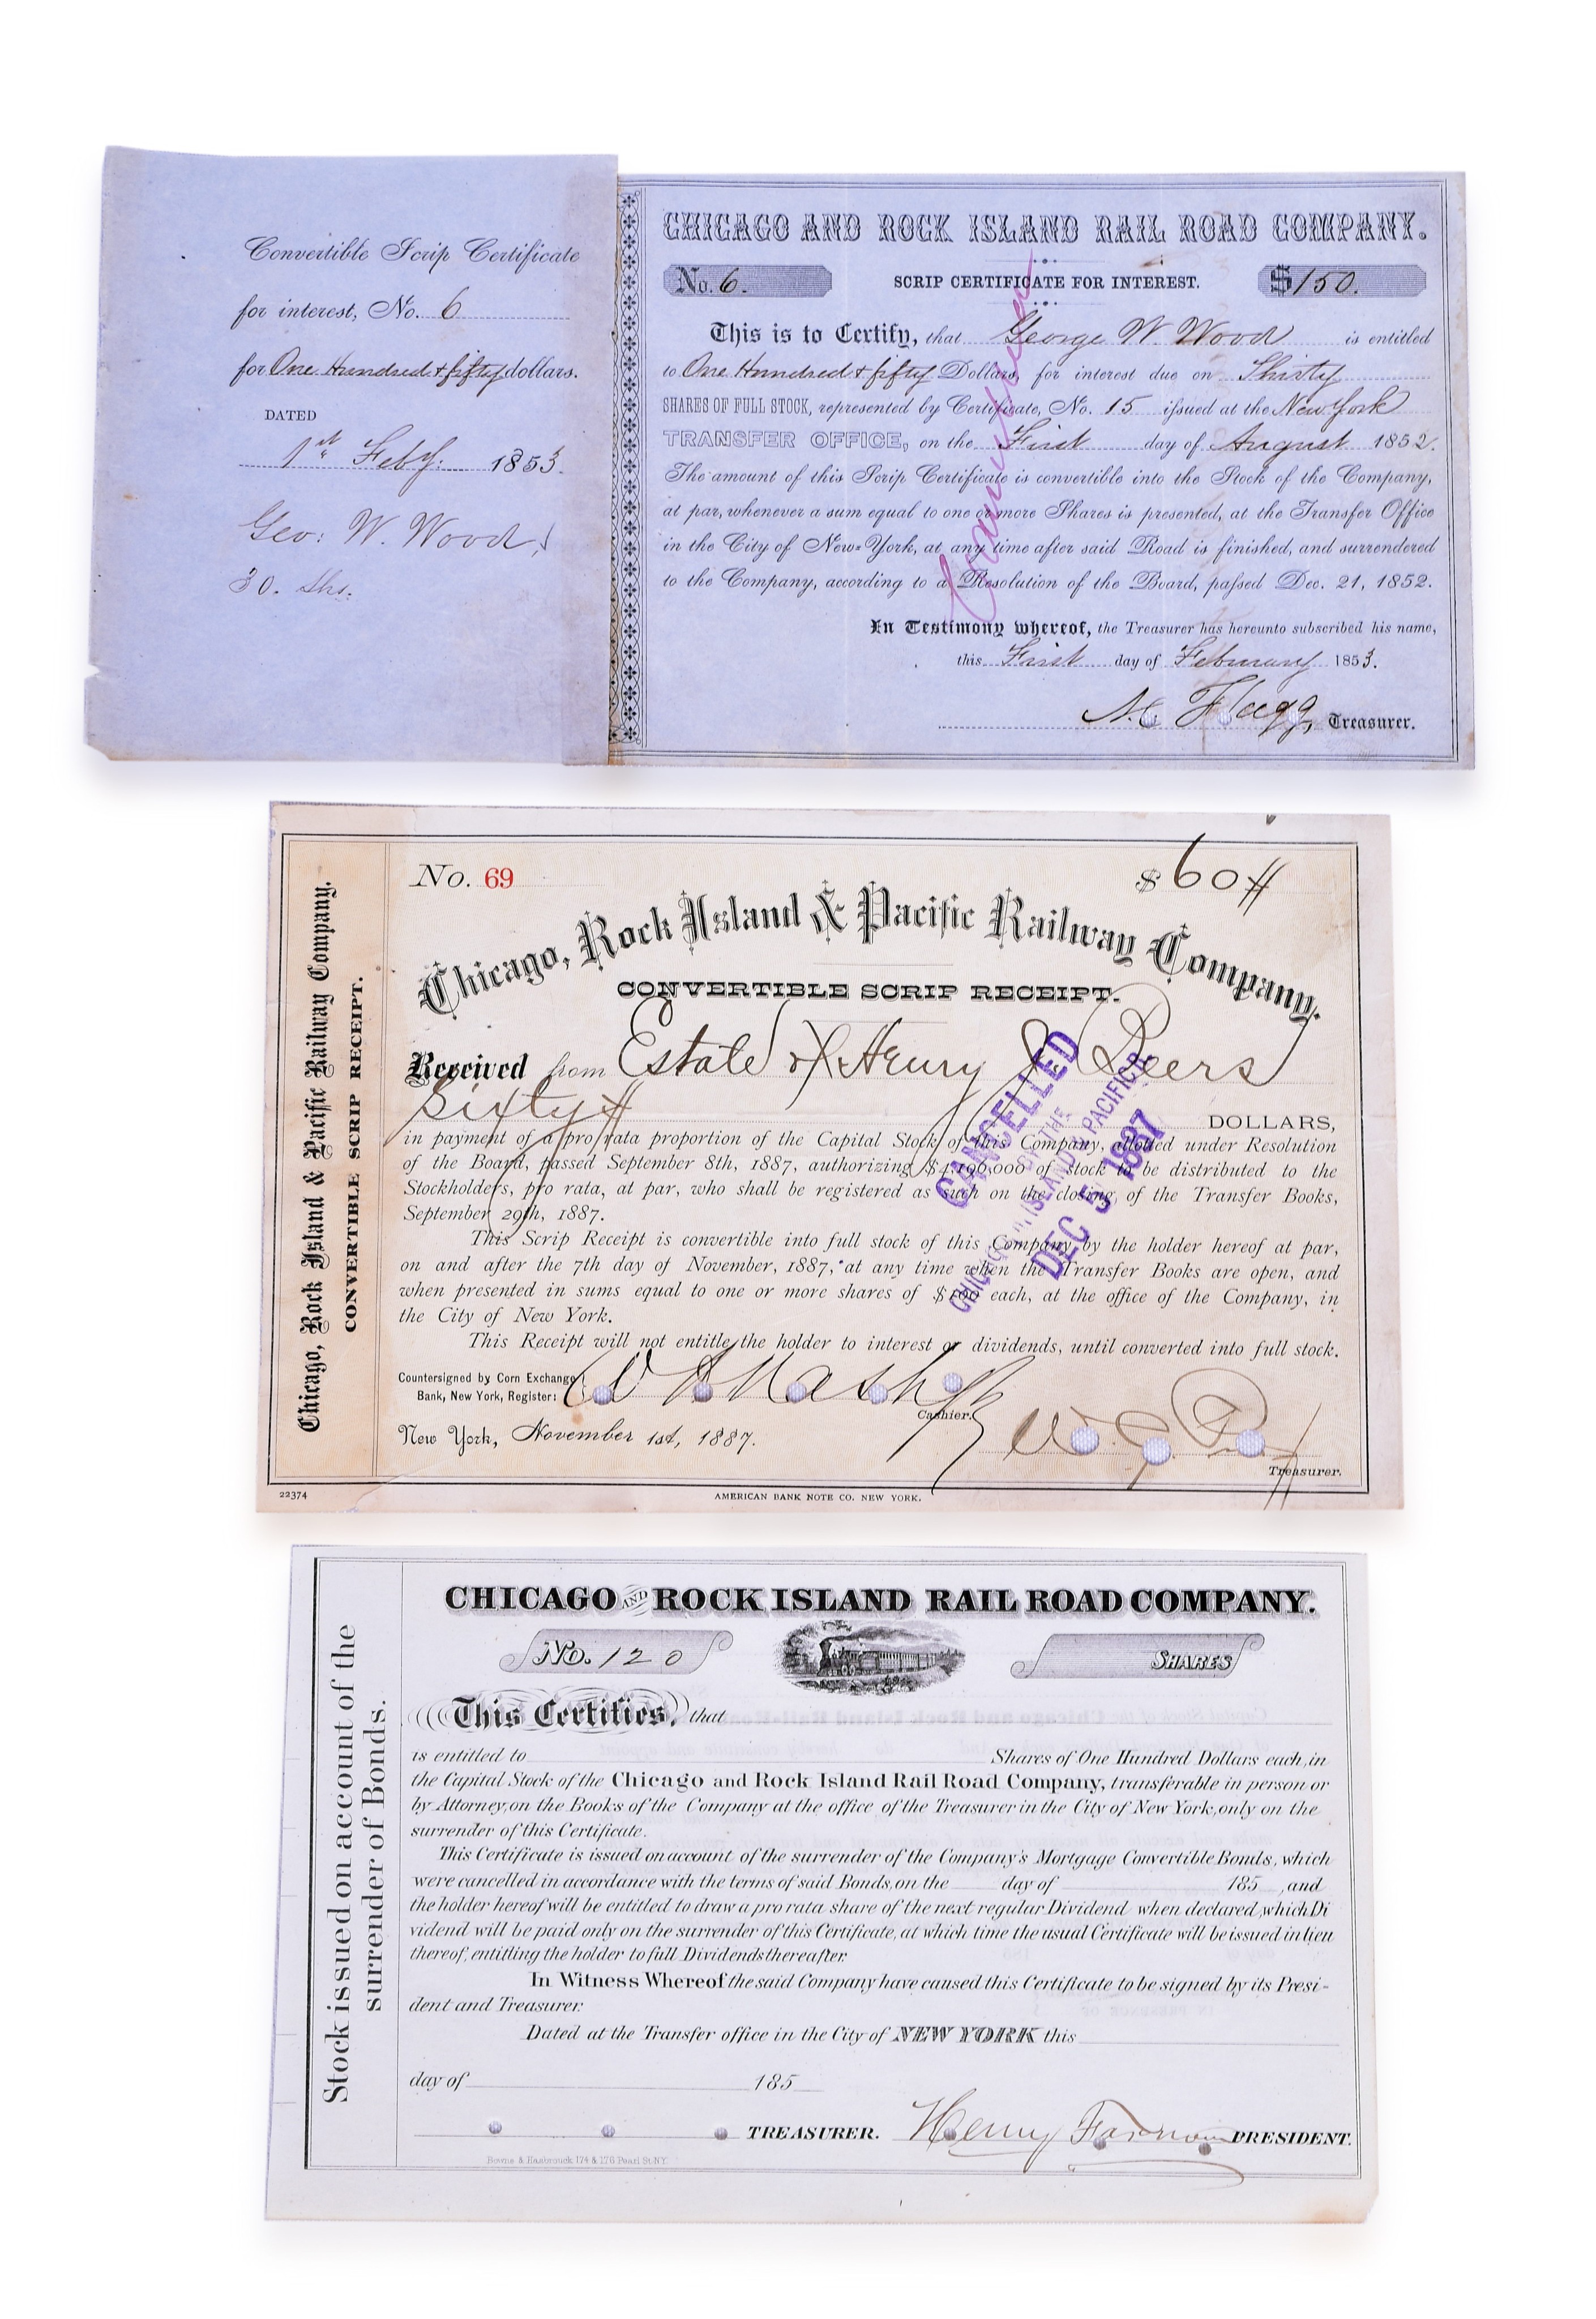 Convertible Scrip Certificate
for interest, No. 6
for One Hundred & fifty dollars.
DATED
1st Feby. 1853.
Geo: W. Wood,
30. Shs.
CHICAGO AND ROCK ISLAND RAIL ROAD COMPANY.
No. 6. SCRIP CERTIFICATE FOR INTEREST. $150.
This is to Certify, that George W. Wood is entitled
to One Hundred & fifty Dollars, for interest due on Thirty
SHARES OF FULL STOCK, represented by Certificate, No. 15 issued at the New York
TRANSFER OFFICE, on the First day of August 1852.
The amount of this Scrip Certificate is convertible into the Stock of the Company,
at par, whenever a sum equal to one or more Shares is presented, at the Transfer Office
in the City of New-York, at any time after said Road is finished, and surrendered
to the Company, according to a Resolution of the Board, passed Dec. 21, 1852.
In Testimony whereof, the Treasurer has hereunto subscribed his name,
this First day of February 1853.
A. C. Flagg, Treasurer.
Chicago, Rock Island & Pacific Railway Company.
CONVERTIBLE SCRIP RECEIPT.
No. 69 $60
Chicago, Rock Island & Pacific Railway Company.
CONVERTIBLE SCRIP RECEIPT.
Received from Estate of Henry J Beers
Sixty
DOLLARS,
in payment of a pro rata proportion of the Capital Stock of this Company, allotted under Resolution
of the Board, passed September 8th, 1887, authorizing $4,196,000 of stock to be distributed to the
Stockholders, pro rata, at par, who shall be registered as such on the closing of the Transfer Books,
September 29th, 1887.
This Scrip Receipt is convertible into full stock of this Company by the holder hereof at par,
on and after the 7th day of November, 1887, at any time when the Transfer Books are open, and
when presented in sums equal to one or more shares of $100 each, at the office of the Company, in
the City of New York.
This Receipt will not entitle the holder to interest or dividends, until converted into full stock.
CANCELLED
DEC 5 1887
Countersigned by Corn Exchange
Bank, New York, Register:
W A Nash
Cashier.
New York, November 1st, 1887.
Treasurer.
22374
AMERICAN BANK NOTE CO. NEW YORK.
Stock issued on account of the
surrender of Bonds.
CHICAGO AND ROCK ISLAND RAIL ROAD COMPANY.
No. 120 SHARES
This Certifies, that
is entitled to Shares of One Hundred Dollars each, in
the Capital Stock of the Chicago and Rock Island Rail Road Company, transferable in person or
by Attorney, on the Books of the Company at the office of the Treasurer in the City of New York, only on the
surrender of this Certificate.
This Certificate is issued on account of the surrender of the Company's Mortgage Convertible Bonds, which
were cancelled in accordance with the terms of said Bonds, on the day of 185 , and
the holder hereof will be entitled to draw a pro rata share of the next regular Dividend when declared, which Di
vidend will be paid only on the surrender of this Certificate, at which time the usual Certificate will be issued in lieu
thereof, entitling the holder to full Dividends thereafter.
In Witness Whereof the said Company have caused this Certificate to be signed by its Presi-
dent and Treasurer.
Dated at the Transfer office in the City of NEW YORK this
day of 185
TREASURER. Henry Farnam PRESIDENT.
Bowne & Hasbrouck 174 & 176 Pearl St. N.Y.